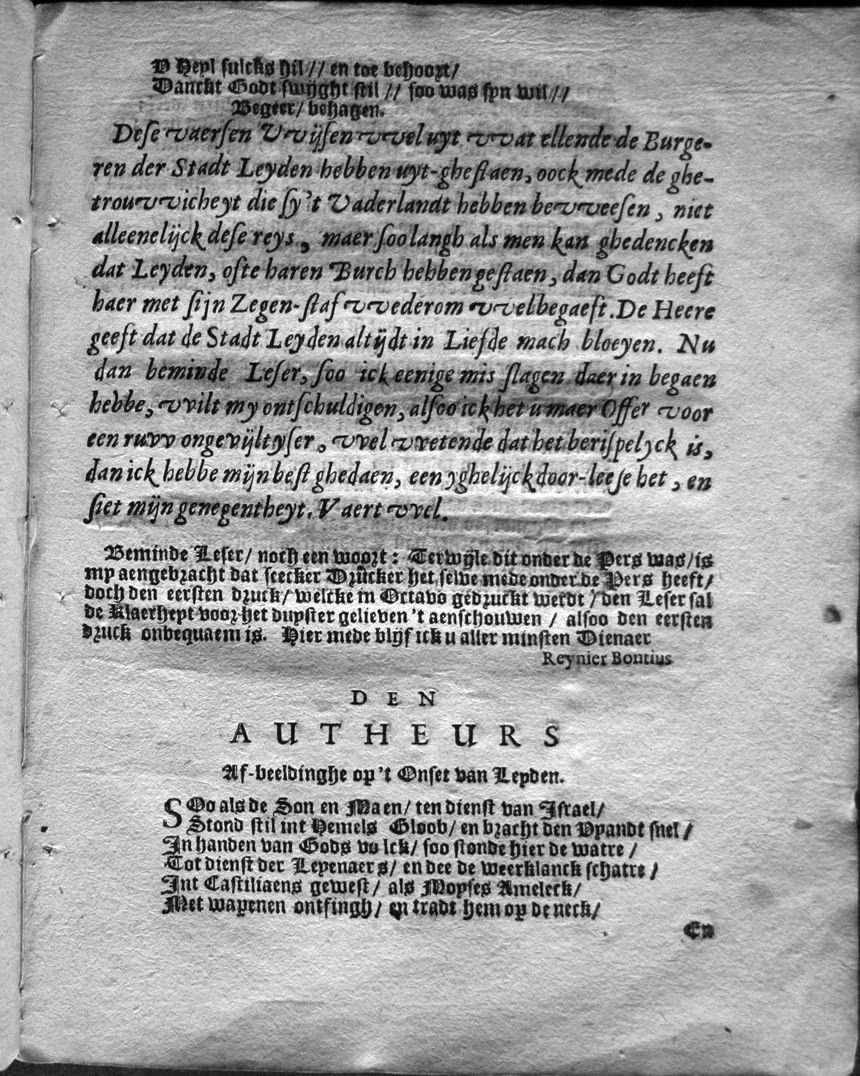 V Heyl sulcks hil // en toe behoort /
Danckt Godt swijght stil // soo was syn wil //
Begeer / behagen.
Dese vaersen Vvijsen vvel uyt vvat ellende de Burge-
ren der Stadt Leyden hebben uyt-ghestaen, oock mede de ghe-
trouvvicheyt die sy 't Vaderlandt hebben bevveesen, niet
alleenelijck dese reys, maer soo langh als men kan ghedencken
dat Leyden, ofte haren Burch hebben gestaen, dan Godt heeft
haer met sijn Zegen-staf vvederom vvelbegaeft. De Heere
geeft dat de Stadt Leyden altijdt in Liefde mach bloeyen. Nu
dan beminde Leser, soo ick eenige mis slagen daer in begaen
hebbe, vvilt my ontschuldigen, alsoo ick het u maer Offer voor
een ruvv ongevijlt yser, vvel vvetende dat het berispelijck is,
dan ick hebbe mijn best ghedaen, een yghelijck door-leese het, en
siet mijn genegentheyt. Vaert vvel.
Beminde Leser / noch een woort : Terwyle dit onder de Pers was / is
my aengebracht dat seecker Drucker het selve mede onder de Pers heeft /
doch den eersten druck / welcke in Octavo gedruckt werdt / den Leser sal
de Klaerheyt voor het duyster gelieven 't aenschouwen / alsoo den eersten
druck onbequaem is. Hier mede blijf ick u aller minsten Dienaer
Reynier Bontius
DEN
AUTHEURS
Af-beeldinghe op 't Onset van Leyden.
SOo als de Son en Maen / ten dienst van Israel /
Stond stil int Hemels Gloob / en bracht den Vyandt snel /
In handen van Gods volck / soo stonde hier de watre /
Tot dienst der Leyenaers / en dee de weerklanck schatre /
Int Castiliaens gewest / als Moyses Ameleck /
Met wapenen ontfingh / en tradt hem op de neck /
En